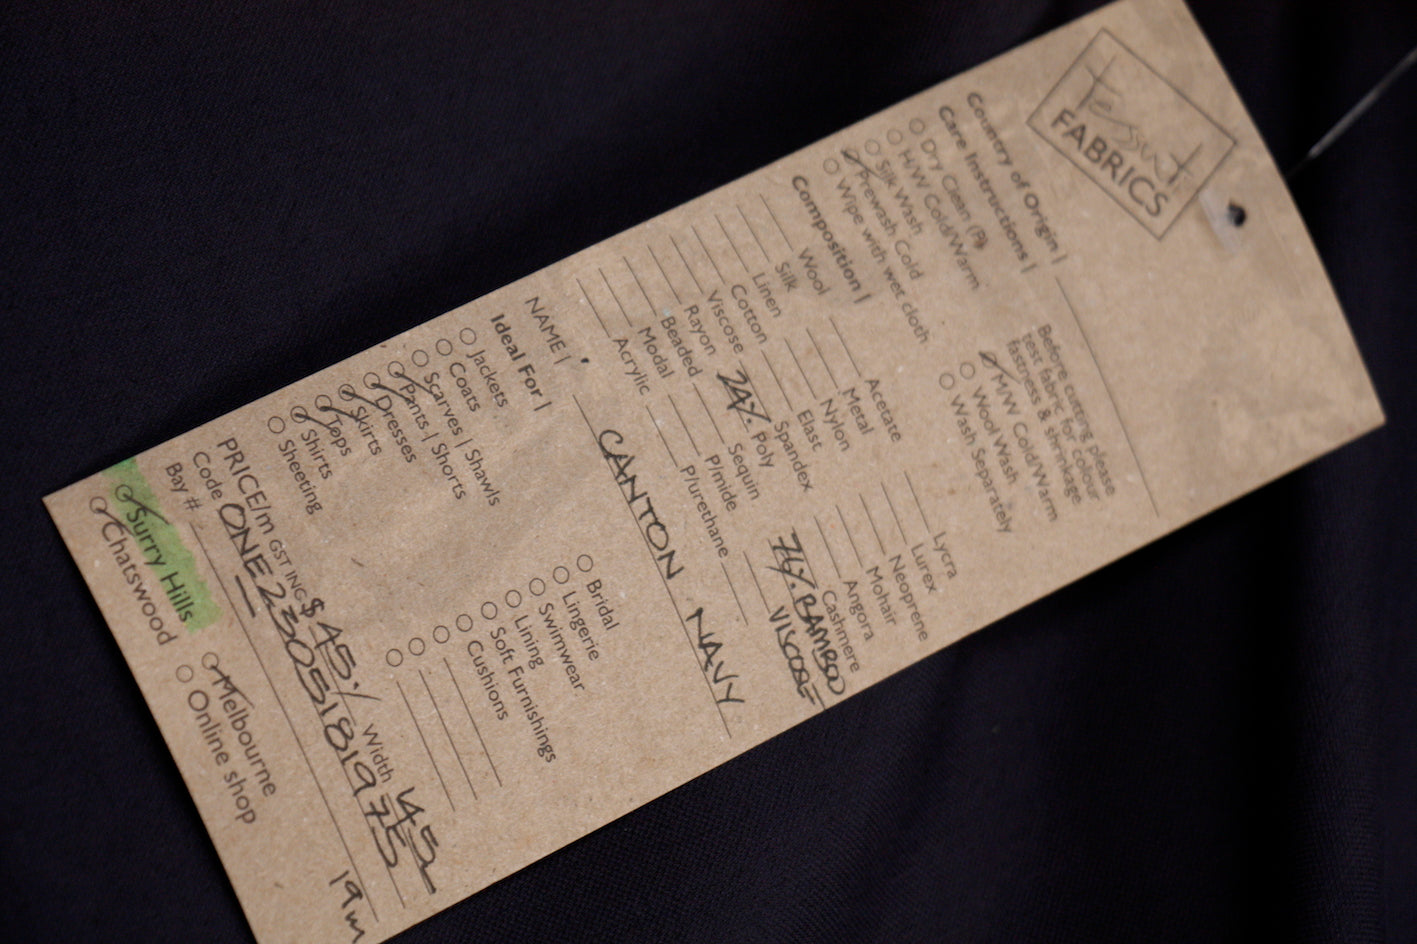 tessuti
FABRICS
Country of Origin |
Care Instructions |
Dry Clean (P)
H/W Cold/Warm
Silk Wash
Prewash Cold
Wipe with wet cloth
Before cutting please
test fabric for colour
fastness & shrinkage.
M/W Cold/Warm
Wool Wash
Wash Separately
Composition |
Wool
Silk
Linen
Cotton
Viscose
Rayon
Beaded
Modal
Acrylic
Acetate
Metal
Nylon
Elast
Spandex
24% Poly
Sequin
P/mide
P/urethane
Lycra
Lurex
Neoprene
Mohair
Angora
Cashmere
76% BAMBOO
VISCOSE
NAME | CANTON NAVY
Ideal For |
Jackets
Coats
Scarves | Shawls
Pants | Shorts
Dresses
Skirts
Tops
Shirts
Sheeting
Bridal
Lingerie
Swimwear
Lining
Soft Furnishings
Cushions
PRICE/m GST INC $45./ Width 145
Code ONE230518197 5
Bay #
19m
Surry Hills
Chatswood
Melbourne
Online shop